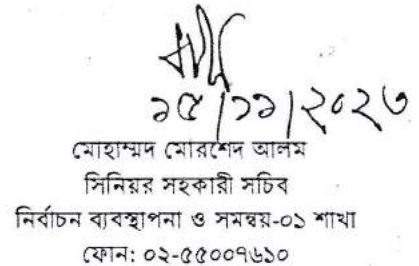 ১৫/১১/২০২৩
মোহাম্মদ মোরশেদ আলম
সিনিয়র সহকারী সচিব
নির্বাচন ব্যবস্থাপনা ও সমন্বয়-০১ শাখা
ফোন: ০২-৫৫০০৭৬১০